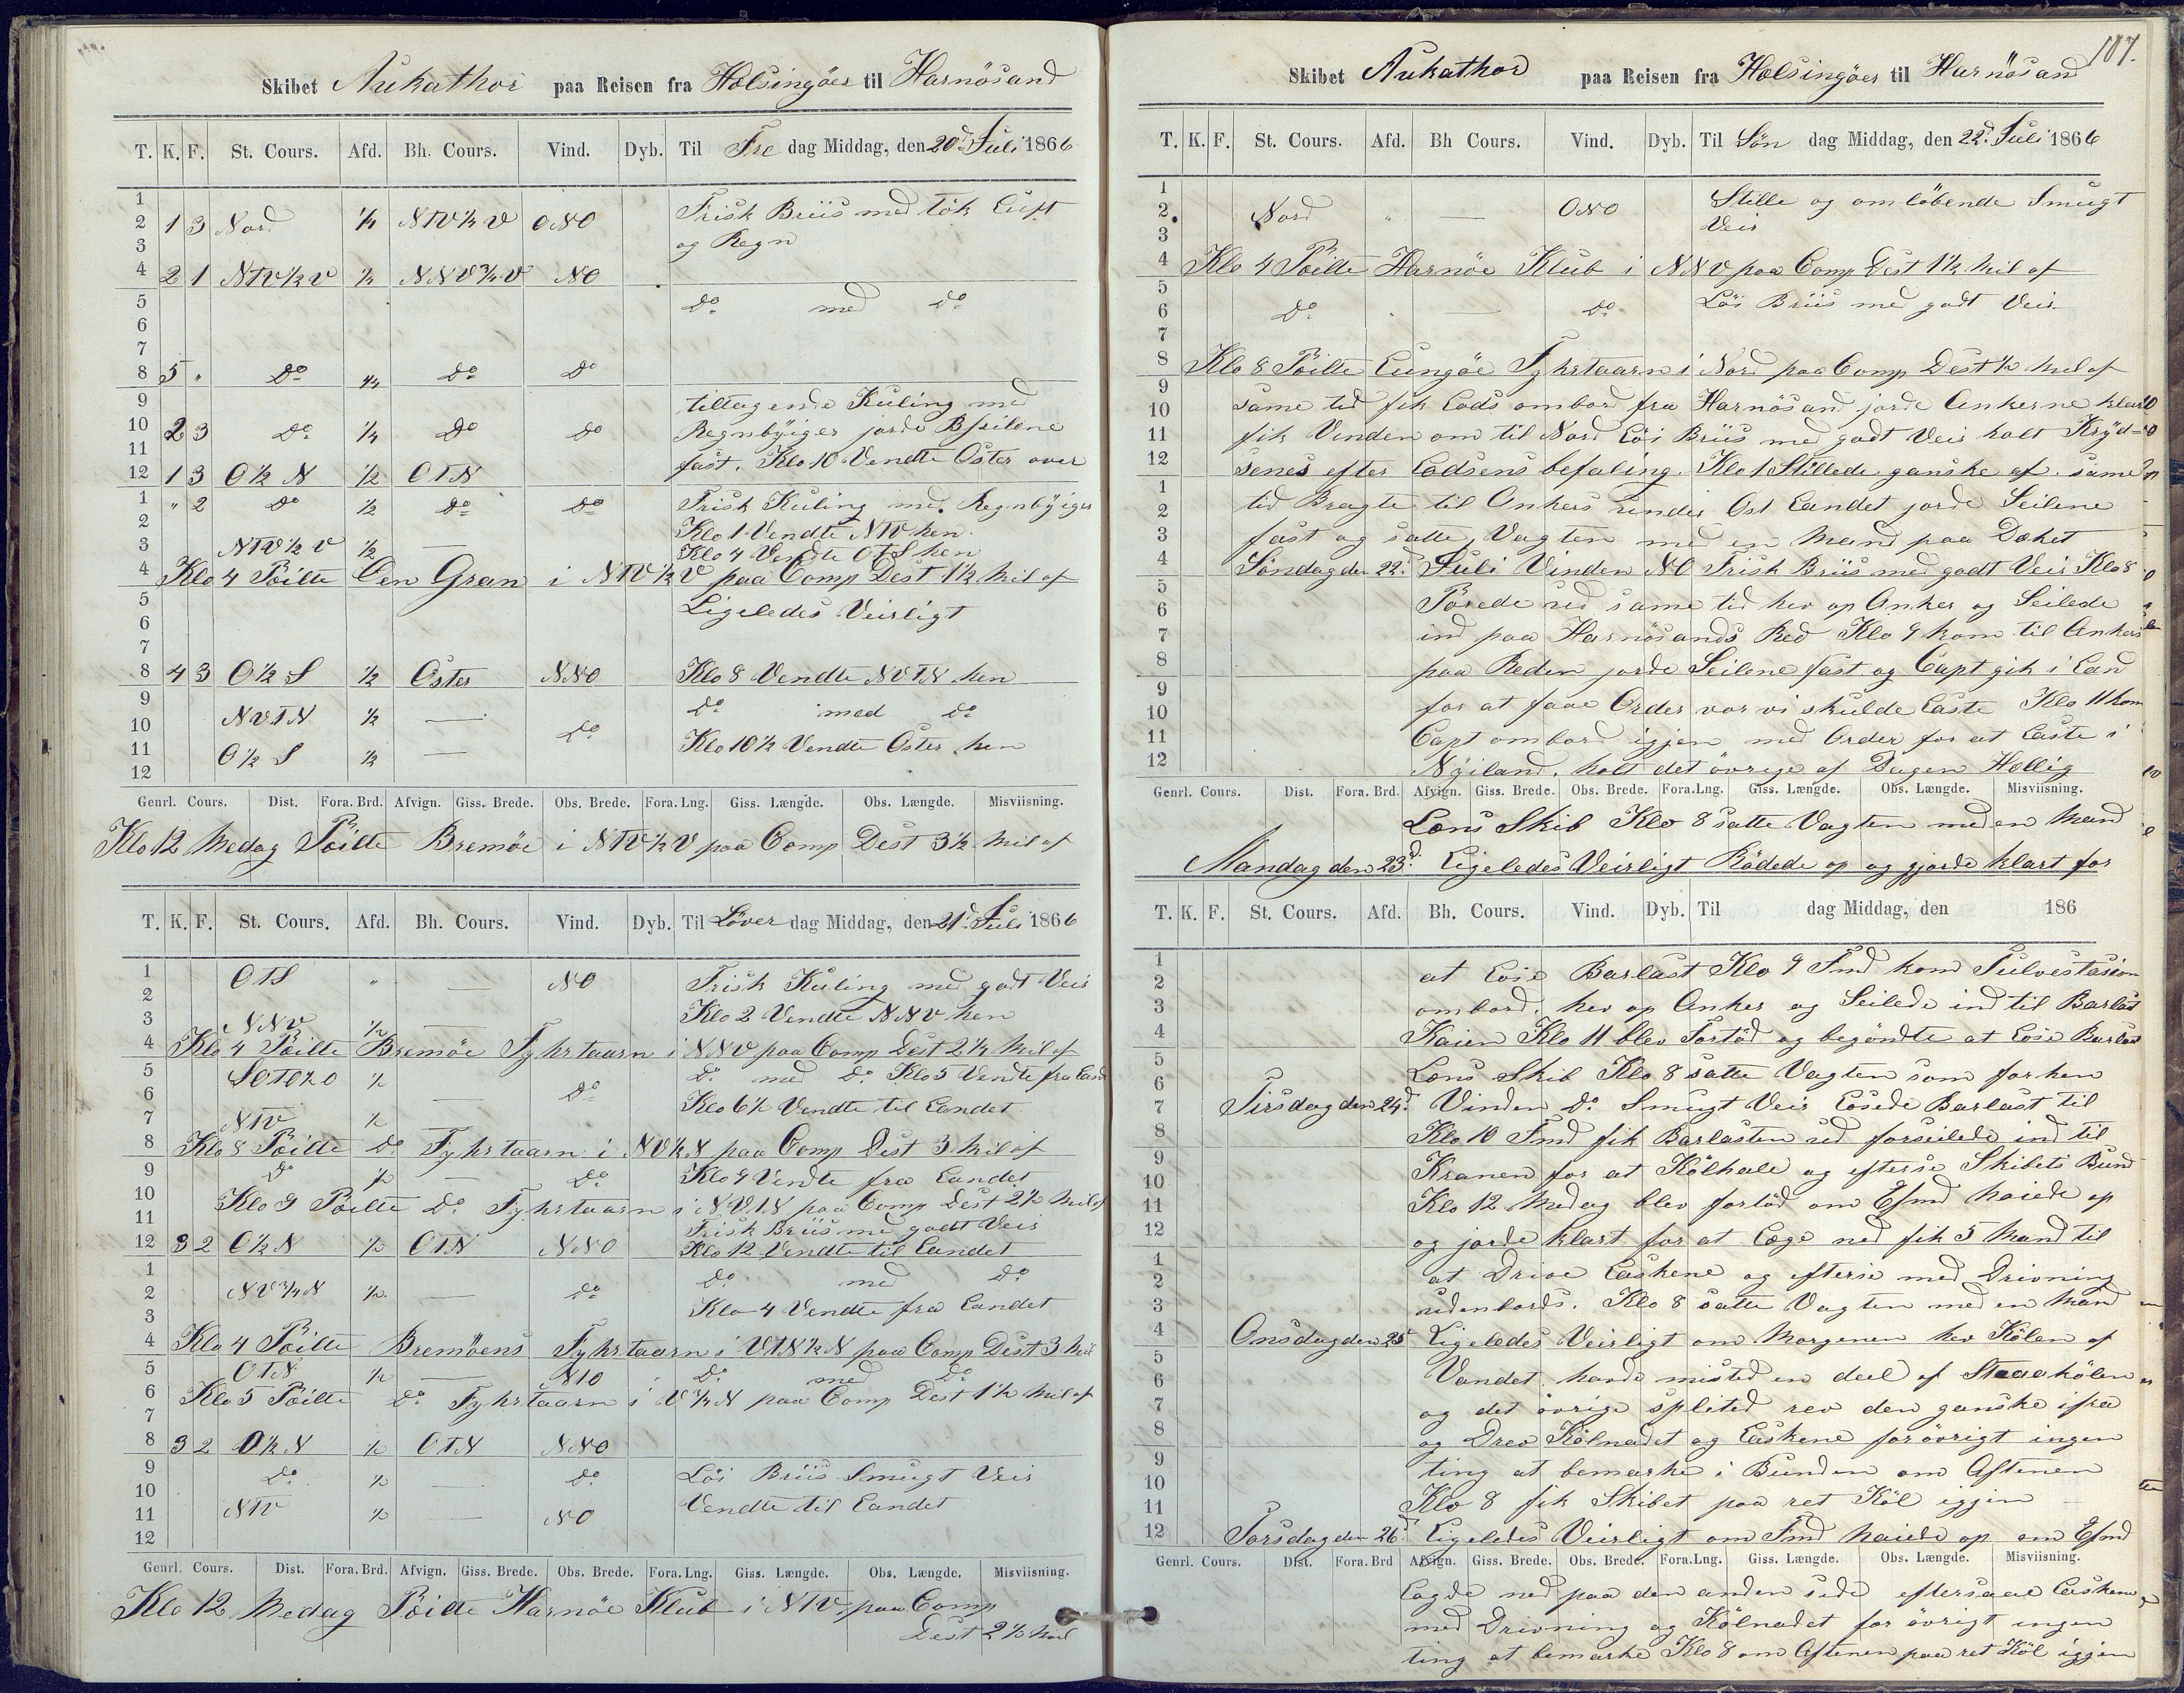 Skibet Aukathor paa Reisen fra Helsingöer til Harnösand
T. K. F. St. Cours. Afd. Bh. Cours. Vind. Dyb. Til Fre dag Middag, den 20d Juli 1866
1
2 1 3 Nord ¼ NTV½V ONO Frisk Briis med tök Luft
3 og Regn
4 2 1 NTV½V ½ NNV¾V NO
5 Do med Do
6
7
8 5 " Do ¼ Do Do
9 tiltagende Kuling med
10 2 3 Do ¼ Do Do Regnbyiger jorde Bseilene
11 fast. Klo 10 Vendte Öster over
12 1 3 O½N ½ OTN
1 " 2 Do ½ Do Do Frisk Kuling med Regnbyiger
2 Klo 1 Vendte NTV hen
3 NTV½V ½ — Klo 4 Vendte OTS hen
4 Klo 4 Pöilte Gran i NTV½V paa Comp Dest 1½ Mil af
5 Ligeledes Veirligt
6
7
8 4 3 O½S ½ Öster NNO Klo 8 Vendte NVTN hen
9 NVTN ½ — Do med Do
10 Do
11 O½S ½ — Klo 10½ Vendte Öster hen
12
Genrl. Cours. Dist. Fora. Brd. Afvign. Giss. Brede. Obs. Brede. Fora. Lng. Giss. Længde. Obs. Længde. Misviisning.
Klo 12 Medag Pöilte Bremöe i NTV½V paa Comp Dest 3½ Mil af
T. K. F. St. Cours. Afd. Bh. Cours. Vind. Dyb. Til Löver dag Middag, den 21d Juli 1866
1 OTS " — NO Frisk Kuling med godt Veir
2 Klo 2 Vendte NNV hen
3 NNV ½ —
4 Klo 4 Pöilte Bremöe Fyhrtaarn i NNV paa Comp Dest 2½ Mil af
5 ½ Do med Do Klo 5 Vendte fra Land
6 — Do Klo 6½ Vendte til Landet
7 NTV ½
8 Klo 8 Pöilte Do Fyhrtaarn i NV½N paa Comp Dest 3 Mil af
9 Do ½ — Do Klo 9 Vendte fra Landet
10 Klo 9 Pöilte Do Fyhrtaarn i NVTN paa Comp Dest 2½ Mil af
11 Frisk Briis med godt Veir
12 3 2 O½N ½ OTN NNO Klo 12 Vendte til Landet
1 Do med Do
2 NV¾N ½ — Do
3 Klo 4 Vendte fra Landet
4 Klo 4 Pöilte Bremöens Fyhrtaarn i VTN½N paa Comp Dest 3 Mil
5 OTN ½ — Do med Do
6 Klo 5 Pöilte Do Fyhrtaarn i V¾N paa Comp Dest 1½ Mil af
7
8 3 2 O½N ½ OTN NNO
9 Do ½ — Do Löi Briis Smugt Veir
10
11 NTV ½ — NO Vendte til Landet
12
Genrl. Cours. Dist. Fora. Brd. Afvign. Giss. Brede. Obs. Brede. Fora. Lng. Giss. Længde. Obs. Længde. Misviisning.
Klo 12 Medag Pöilte Harnöe Klub i NTV paa Comp
Dest 2½ Mil
107.
Skibet Aukathor paa Reisen fra Helsingöer til Harnösand
T. K. F. St. Cours. Afd. Bh Cours. Vind. Dyb. Til Sön dag Middag, den 22d Juli 1866
1 Stille og omlöbende Smugt
2 Nord " — ONO Veir
3
4 Klo 4 Pöilte Harnöe Klub i NNV paa Comp Dest 1½ Mil af
5 Löi Briis med godt Veir
6 Do " — Do
7
8 Klo 8 Pöilte Lungöe Fyhrtaarn i Nord paa Comp Dest ½ Mil af
9 same tid fik Lods ombord fra Harnösand jorde Ankerne klar
10 fik Vinden om til Nord Löi Briis med godt Veir holt Kryd-
11 senes efter Lodsens befaling. Klo 1 Stillede ganske af. same
12
1 tid Bragte til Ankers under Ost Landet jorde Seilene
2 fast og satte Vagten med en Mand paa Dæket
3
4 Söndag den 22d Juli Vinden NO Frisk Briis med godt Veir Klo 8
5 Purede ud same tid hev op Anker og Seilede
6 ind paa Harnösands Red Klo 9 kom til Ankers
7
8 paa Reden jorde Seilene fast og Capt gik i Land
9 for at faae Order vor vi skulde Laste Klo 11 kom
10
11 Capt ombord igjen med Order for at Laste i
12 Nyiland. holt det övrige af Dagen Hellig
Genrl. Cours. Dist. Fora. Brd. Afvign. Giss. Brede. Obs. Brede. Fora. Lng. Giss. Længde. Obs. Længde. Misviisning.
Lens Skib Klo 8 satte Vagten med en Mand
Mandag den 23d Ligeledes Veirligt Rödede op og gjorde klart for
T. K. F. St. Cours. Afd. Bh. Cours. Vind. Dyb. Til dag Middag, den 186
1 at Losse Barlast Klo 9 Fmd kom
2
3 ombord. hev op Anker og Seilede ind til Barlast
4 Kaien Klo 11 blev Fortöd og begöndte at Losse Barlast
5 Lens Skib Klo 8 satte Vagten som forhen
6
7 Tirsdag den 24d Vinden Do Smugt Veir Lossede Barlast til
8 Klo 10 Fmd fik Barlasten ud forseilede ind til
9 Kranen for at Kölhale og efterse Skibets Bund
10
11 Klo 12 Medag blev fortöd om Efmd haiede op
12 og jorde klart for at Læge ned fik 5 Mand til
1 at Drive Laskene og efterse med Drivning
2
3 udenbords. Klo 8 satte Vagten med en Mand
4 Onsdag den 25 Ligeledes Veirligt om Morgenen hev Kölen af
5 Vandet. havde misted en deel af Straakölen
6
7 og det övrige splited rev den ganske ifra
8 og Drev Kölnadet og Laskene forövrigt ingen
9 ting at bemærke i Bunden om Aftenen
10
11 Klo 8 fik Skibet paa ret Köl igjen
12 Torsdag den 26d Ligeledes Veirligt om Fmd haiede op om Efmd
Genrl. Cours. Dist. Fora. Brd Afvign. Giss. Brede. Obs. Brede. Fora. Lng. Giss. Længde. Obs. Længde. Misviisning.
Lagde ned paa den anden side eftersaae Laskene
med Drivning og Kölnadet for övrigt ingen
ting at bemærke Klo 8 om Aftenen paa ret Köl igjen